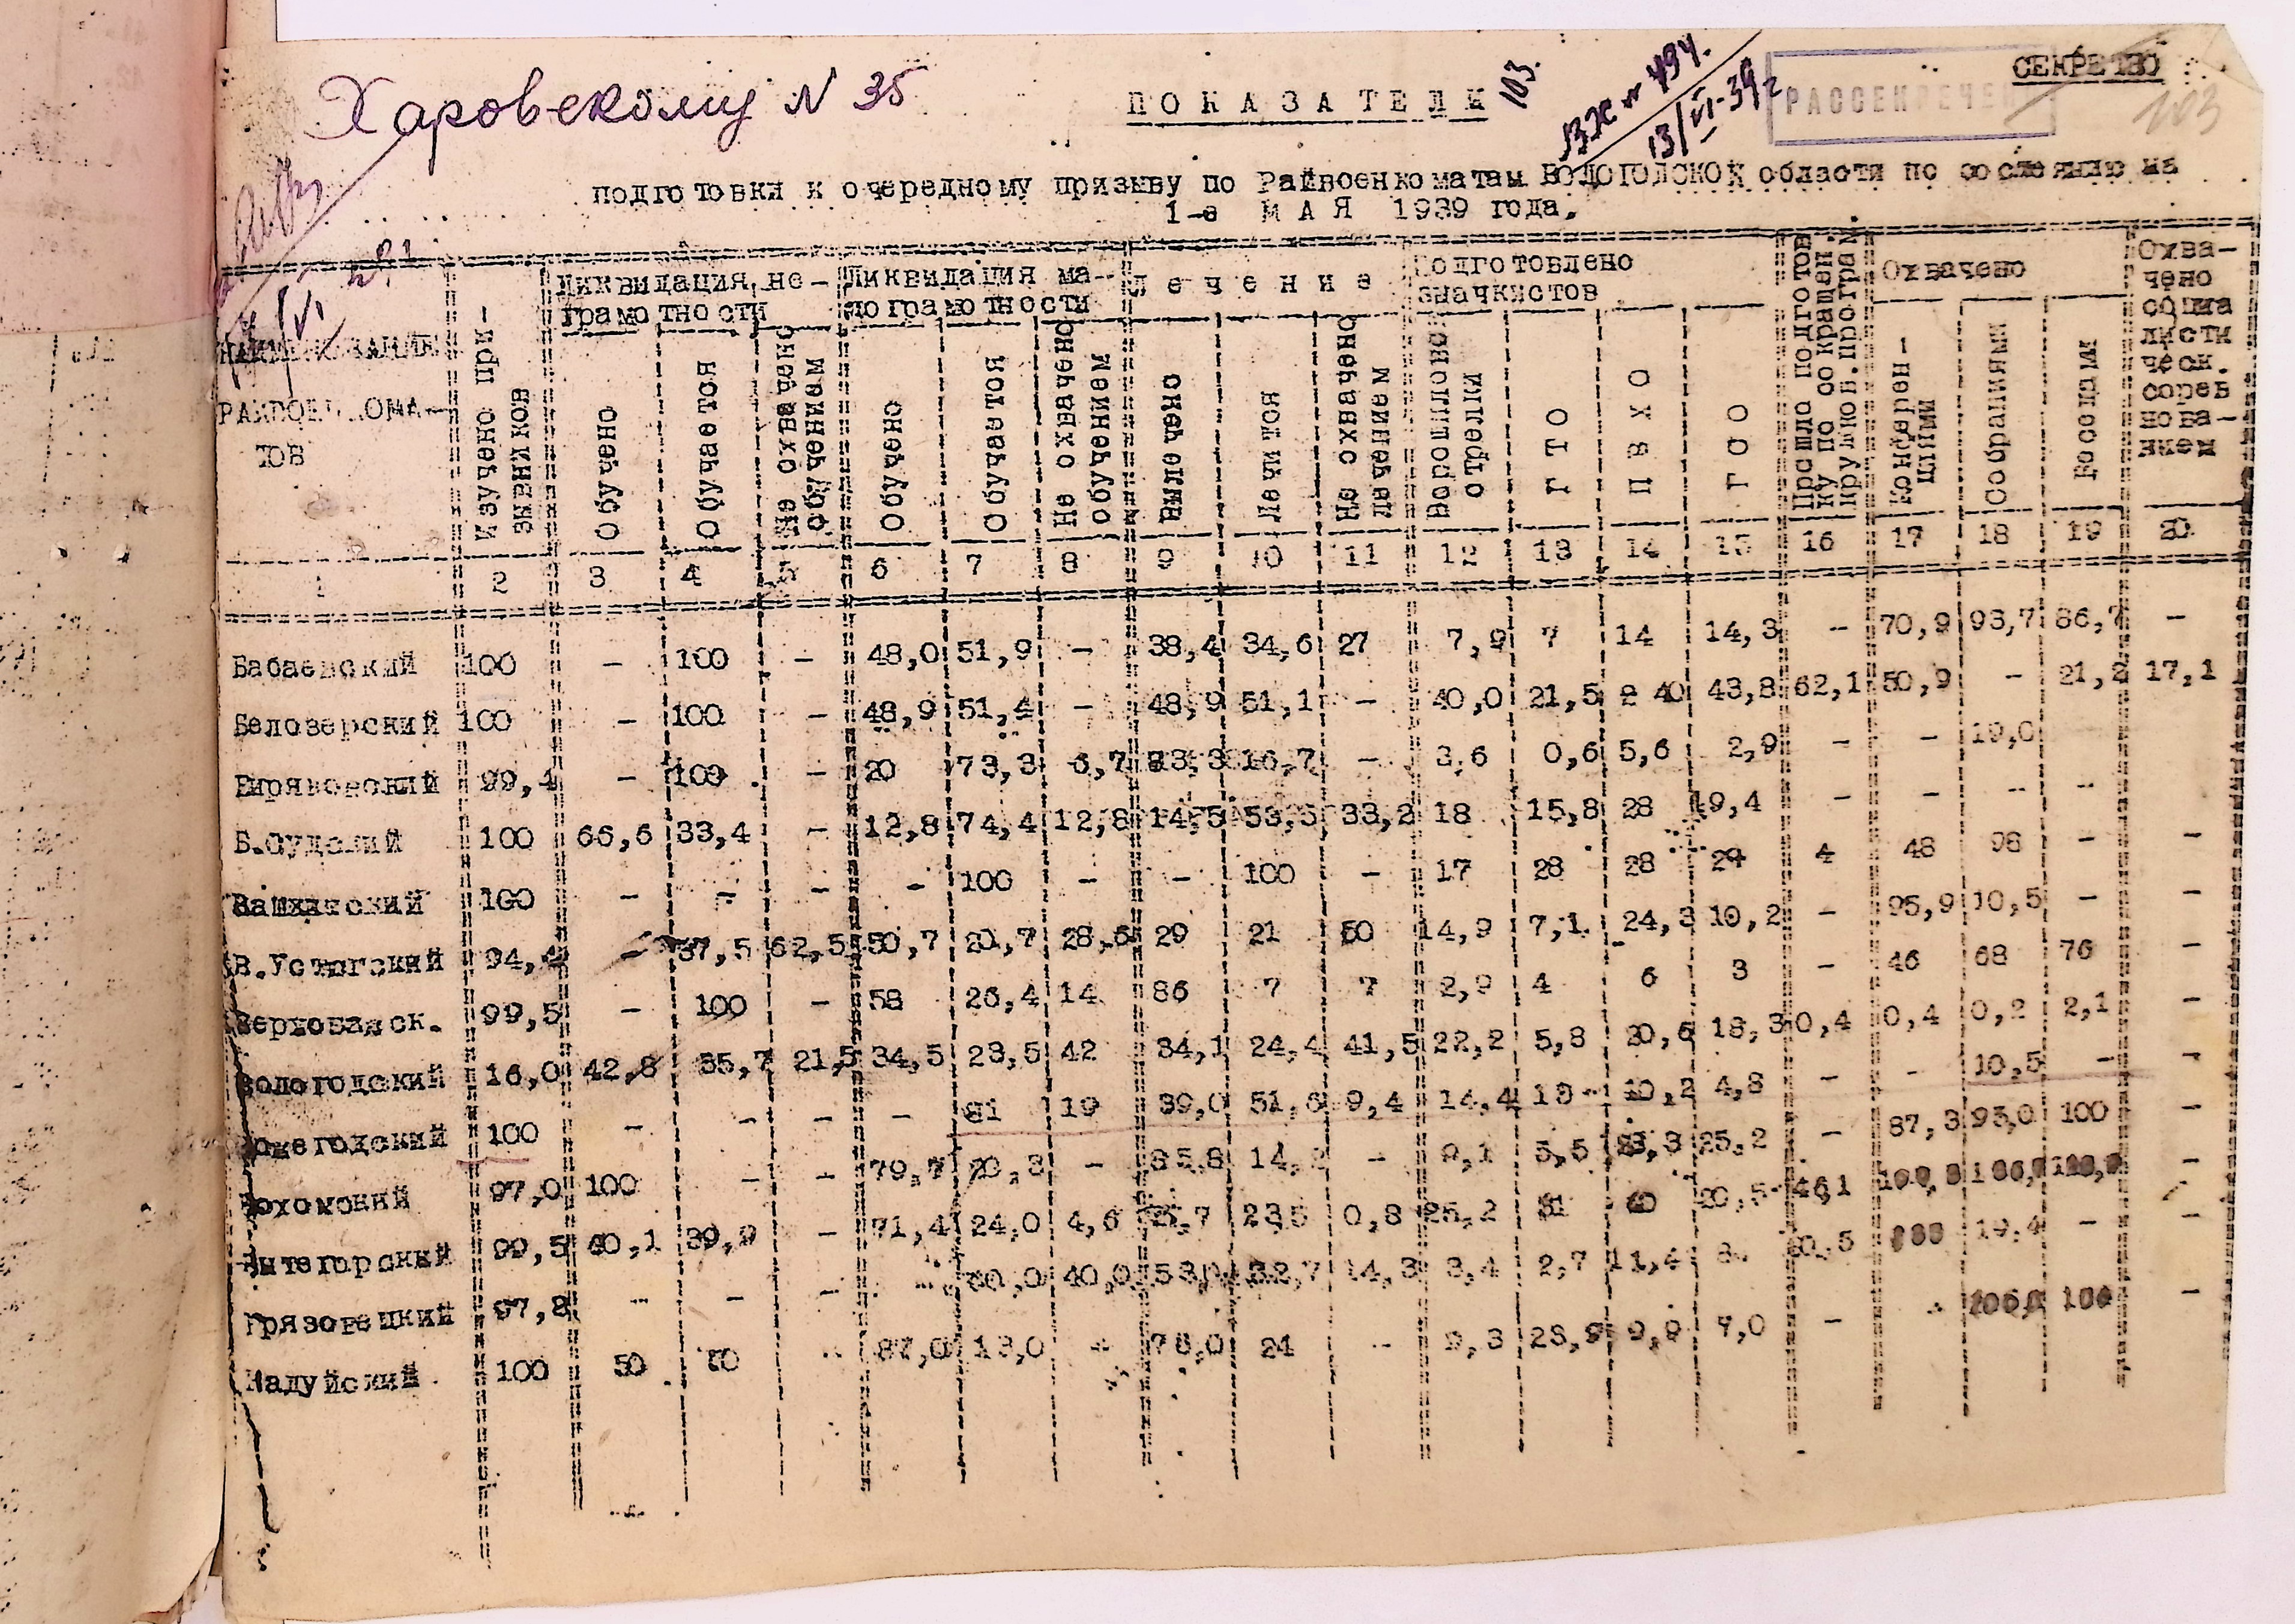 Харовскому N 35
ПОКАЗАТЕЛИ
103.
Вх № 494.
13/VI-39г
СЕКРЕТНО
РАССЕКРЕЧЕНО
103
подготовки к очередному призыву по Райвоенкоматам ВОЛОГОДСКОЙ области по состоянию на
1-е МАЯ 1939 года.
НАИМЕНОВАНИЕ РАЙВОЕНКОМА-ТОВ
Изучено при-зывников
Ликвидация не-грамотности
Обучено
Обучается
Не охвачено обучением
Ликвидация ма-лограмотности
Обучено
Обучается
Не охвачено обучением
Лечение
Лечится
Не охвачено лечением
Подготовлено значкистов
Ворошиловск стрелки
ГТО
ПВХО
ГСО
Прошло подготов ку по сокращен. кружков. програм.
Охвачено
Конферен-циями
Собраниями
Беседами
Охва-чено социа листи ческ. сорев нова-нием
1 2 3 4 5 6 7 8 9 10 11 12 13 14 15 16 17 18 19 20
Бабаевский 100 - 100 - 48,0 51,9 - 38,4 34,6 27 7,9 7 14 14,3 - 70,9 93,7 86,7 -
Белозерский 100 - 100 - 48,9 51,4 - 48,9 51,1 - 40,0 21,5 40 43,8 62,1 50,9 - 21,2 17,1
Биряковский 99,4 - 100 - 20 73,3 6,7 16,7 - 3,6 0,6 5,6 2,9 - - 19,0
Б.Судский 100 66,6 33,4 - 12,8 74,4 12,8 14,5 53,5 33,2 18 15,8 28 19,4 - - - -
Вашкинский 100 - - - - 100 - - 100 - 17 28 28 4 48 98 - -
В.Устюгский 94,4 - 37,5 62,5 50,7 20,7 28,6 29 21 50 14,9 7,1 24,3 10,2 - 95,9 10,5 - -
Верховажск. 99,5 - 100 - 58 26,4 14 86 7 7 2,9 4 6 3 - 46 68 76 -
Вологодский 16,0 42,8 35,7 21,5 34,5 23,5 42 34,1 24,4 41,5 22,2 5,8 20,6 18,3 0,4 0,4 0,2 2,1 -
Вожегодский 100 - - - - 81 19 39,0 51,6 9,4 14,4 10,2 4,8 - - 10,5 - -
Вохомский 97,0 100 - - 79,7 20,3 - 85,8 14,2 - 9,1 5,5 25,2 - 87,3 93,0 100 -
Вытегорский 99,5 60,1 39,9 - 71,4 24,0 4,6 23,5 0,8 25,2 20,5 46,1 -
Грязовецкий 97,8 - - - 60,0 40,0 53,0 32,7 14,3 3,4 2,7 11,4 19,4 - -
Кадуйский 100 50 50 87,0 13,0 - 76,0 24 - 9,3 9,9 7,0 - 100 -